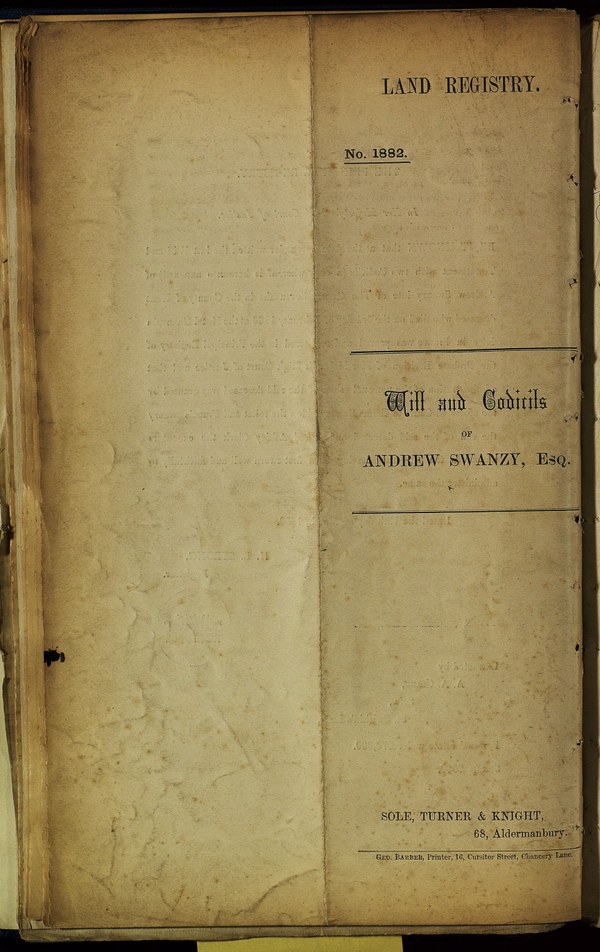 LAND REGISTRY.
No. 1882.
Will and Codicils
OF
ANDREW SWANZY, Esq.
SOLE, TURNER & KNIGHT,
68, Aldermanbury.
Geo. Barber, Printer, 16, Cursitor Street, Chancery Lane.